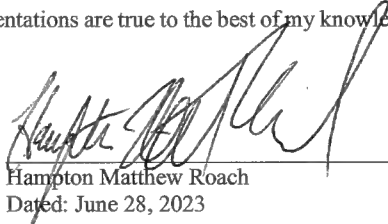 entations are true to the best of my knowle
Hampton Matthew Roach
Dated: June 28, 2023